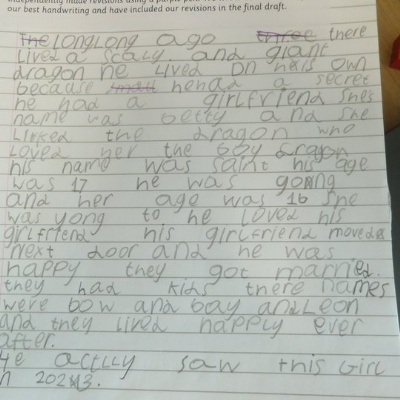 independently made revisions using a purple pen. We
our best handwriting and have included our revisions in the final draft.
The LONGLONG ago three there
Lived a scaly and giant
dragon he Lived on his own
because he had a secret
he had a girlfriend shes
name was betty and she
Linked the dragon who
Loved her the boy dragon
his name was saint his age
was 17 he was going
and her age was 16 She
was yong to he loved his
girlfriend his girlfriend moved
Next door and he was
happy they got married.
they had kids there names
were bow and bay and Leon
and they lived happly ever
after.
He actlly saw this Girl
in 2023.